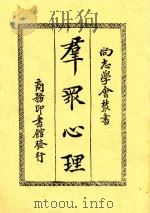 尚志學會叢書
羣眾心理
商務印書館發行